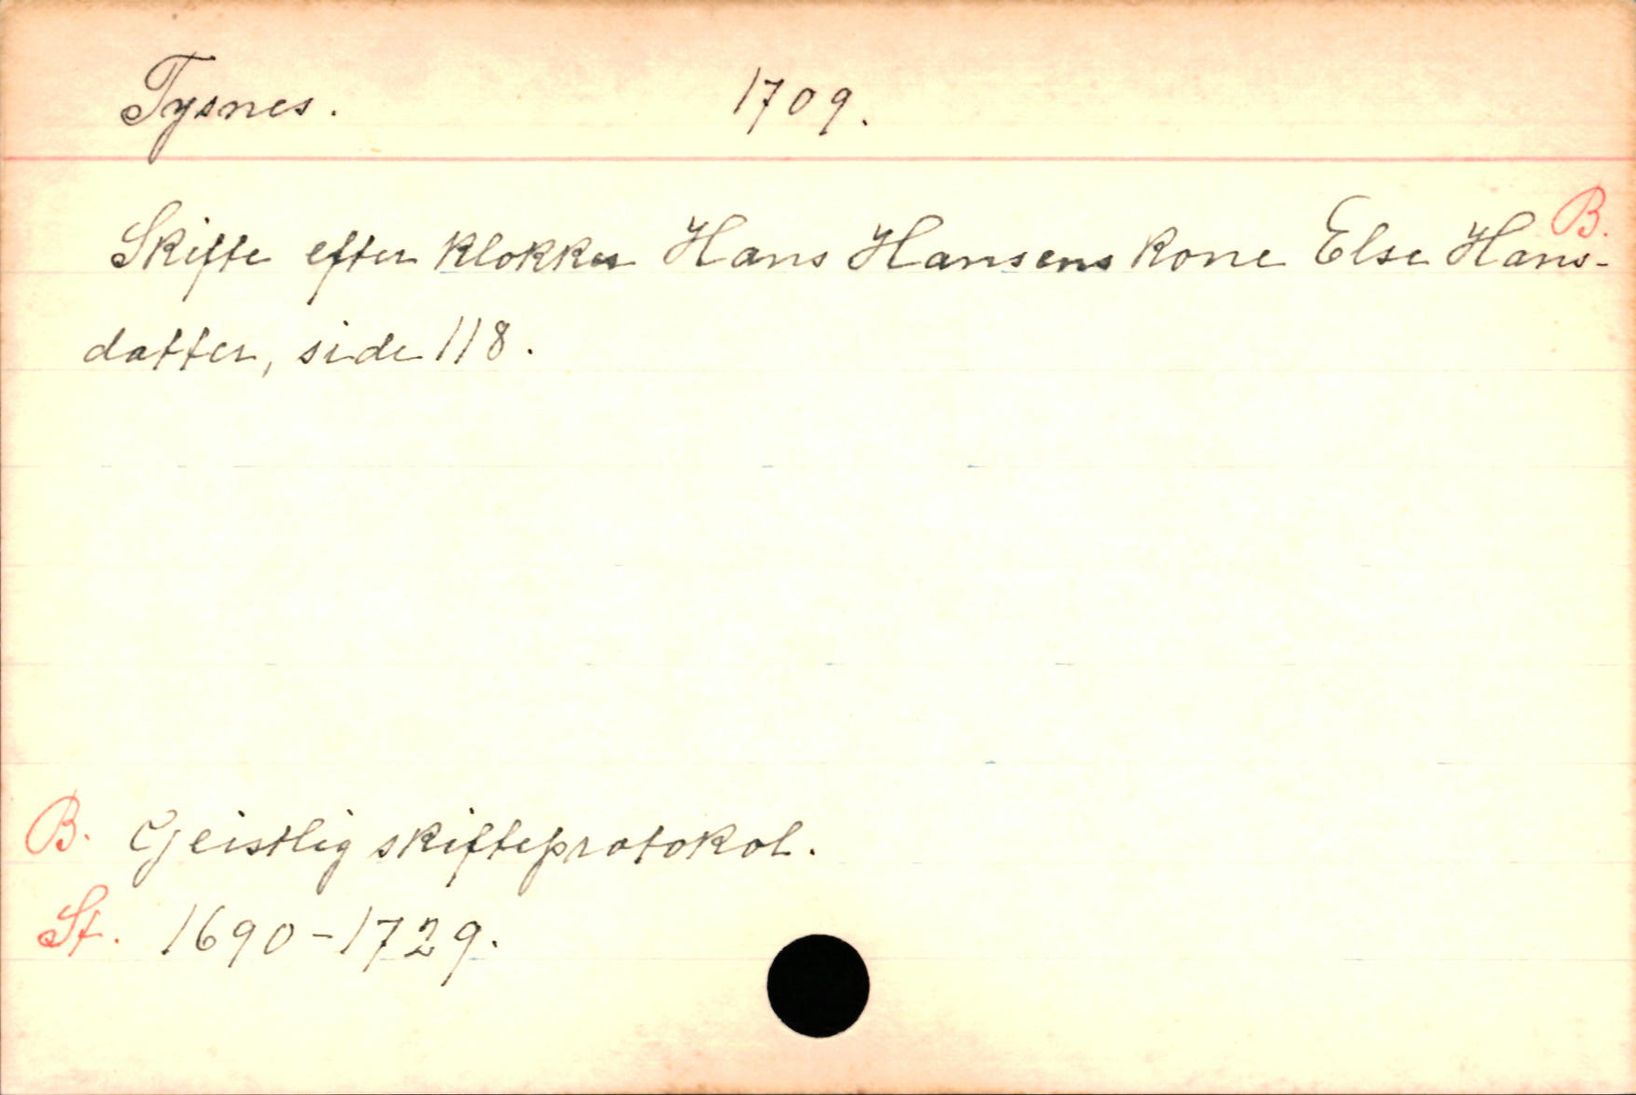 Tysnes. 1709.
B.
Skifte efter klokker Hans Hansens kone Else Hans-
datter, side 118.
B. Geistlig skifteprotokol.
St. 1690-1729.